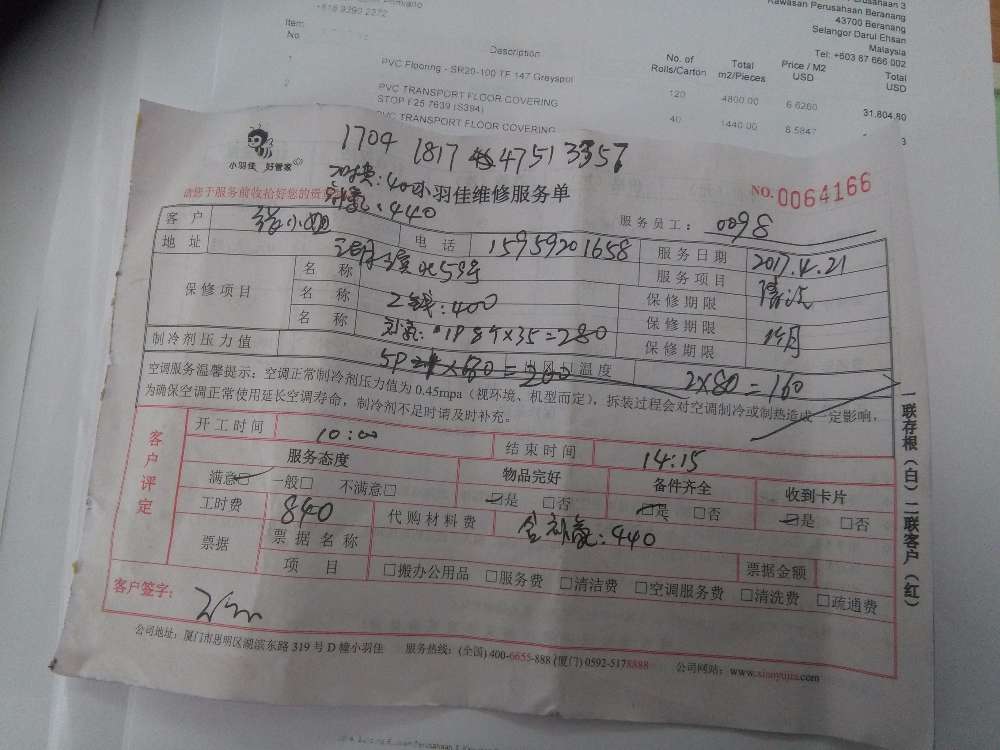 +618 9390 2272
Kawasan Perusahaan Beranang
43700 Beranang
Selangor Darul Ehsan
Malaysia
Tel: +603 87 666 002
Item
No
Description
No. of
Rolls/Carton
Total
m2/Pieces
Price / M2
USD
Total
USD
1
PVC Flooring - SR20-100 TF 147 Greyspot
120
4800.00
6.6260
31,804.80
2
PVC TRANSPORT FLOOR COVERING
STOP F25 7639 (S394)
40
1440.00
6.5847
PVC TRANSPORT FLOOR COVERING
小羽佳 好管家
1704 1817 47513357
:400
小羽佳维修服务单
NO.0064166
请您于服务前收拾好您的贵
:440
服务员工: 0098
客户
小姐
电话
15959201658
服务日期
2017.4.21
地址
服务项目
清洗
保修项目
名称
保修期限
名称
:400
保修期限
个月
名称
1P 8个×35=280
保修期限
制冷剂压力值
5P
温度
2×80=160
空调服务温馨提示:空调正常制冷剂压力值为 0.45mpa(视环境、机型而定),拆装过程会对空调制冷或制热造成一定影响,
为确保空调正常使用延长空调寿命,制冷剂不足时请及时补充。
客户评定
开工时间
10:00
结束时间
14:15
服务态度
物品完好
备件齐全
收到卡片
满意☑ 一般□ 不满意□
☑是 □否
☑是 □否
☑是 □否
工时费
840
代购材料费
含 :440
票据
票据名称
票据金额
项目
□搬办公用品 □服务费 □清洁费 □空调服务费 □清洗费 □疏通费
客户签字:
一联存根(白)二联客户(红)
公司地址:厦门市思明区湖滨东路 319 号 D 幢小羽佳 服务热线:(全国) 400-6655-888 (厦门) 0592-5178888 公司网站:www.xiaoyujia.com